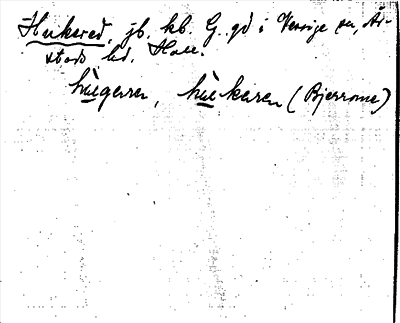 Hukered, jb. kb. G. gd i Versige sn, År-
stads hd. Hall.
hùgeren, hùkeren (Bjerrome)